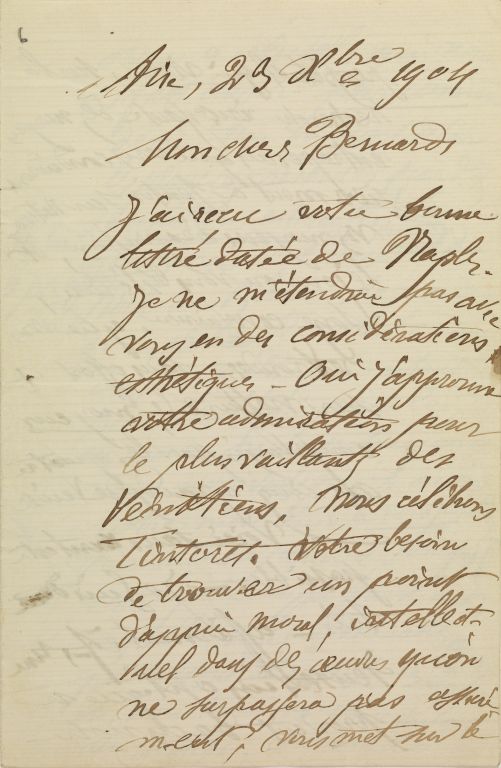 6
Aix, 23 Xbre 1904
Mon cher Bernard
J'ai reçu votre bonne
lettre datée de Naples.
Je ne m'étendrai pas avec
vous en des considérations
esthétiques — Oui j'approuve
votre admiration pour
le plus vaillant des
Vénitiens, nous célébrons
Tintoret. Votre besoin
de trouver un point
d'appui moral, intellect-
uel dans des œuvres qu'on
ne surpassera pas assuré-
ment, vous met sur le